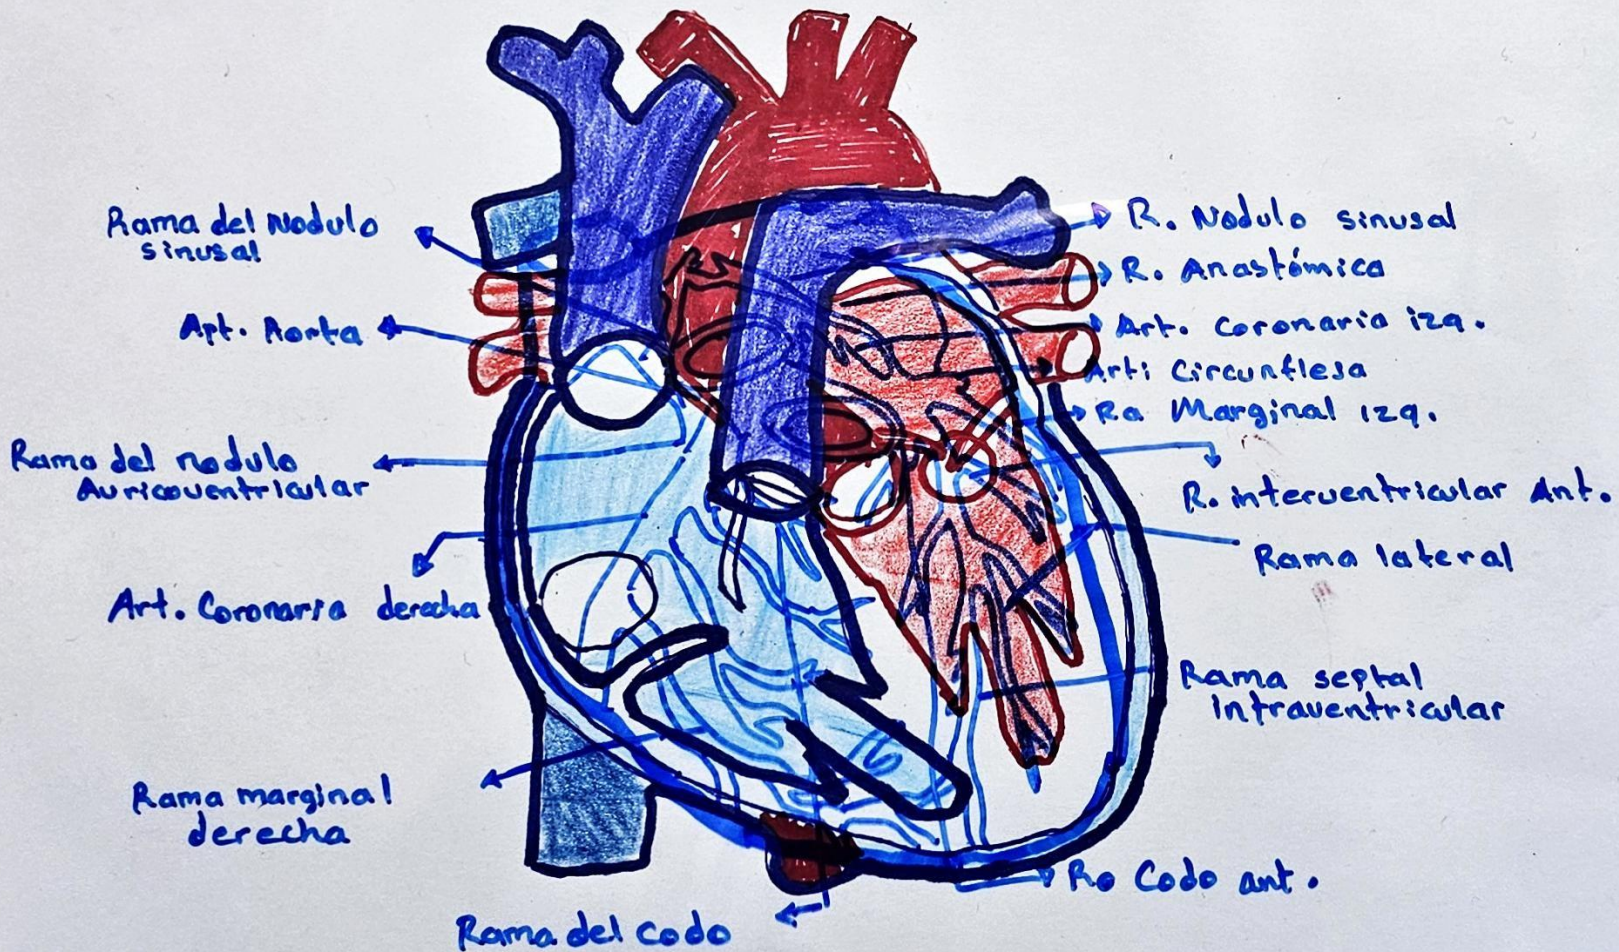 Rama del Nodulo
sinusal
Art. Aorta
Rama del nodulo
Auricoventricular
Art. Coronaria derecha
Rama marginal
derecha
Rama del codo
R. Nodulo sinusal
R. Anastómica
Art. Coronaria izq.
Arti Circunflesa
Ra Marginal izq.
R. interventricular Ant.
Rama lateral
Rama septal
intraventricular
Ro Codo ant.